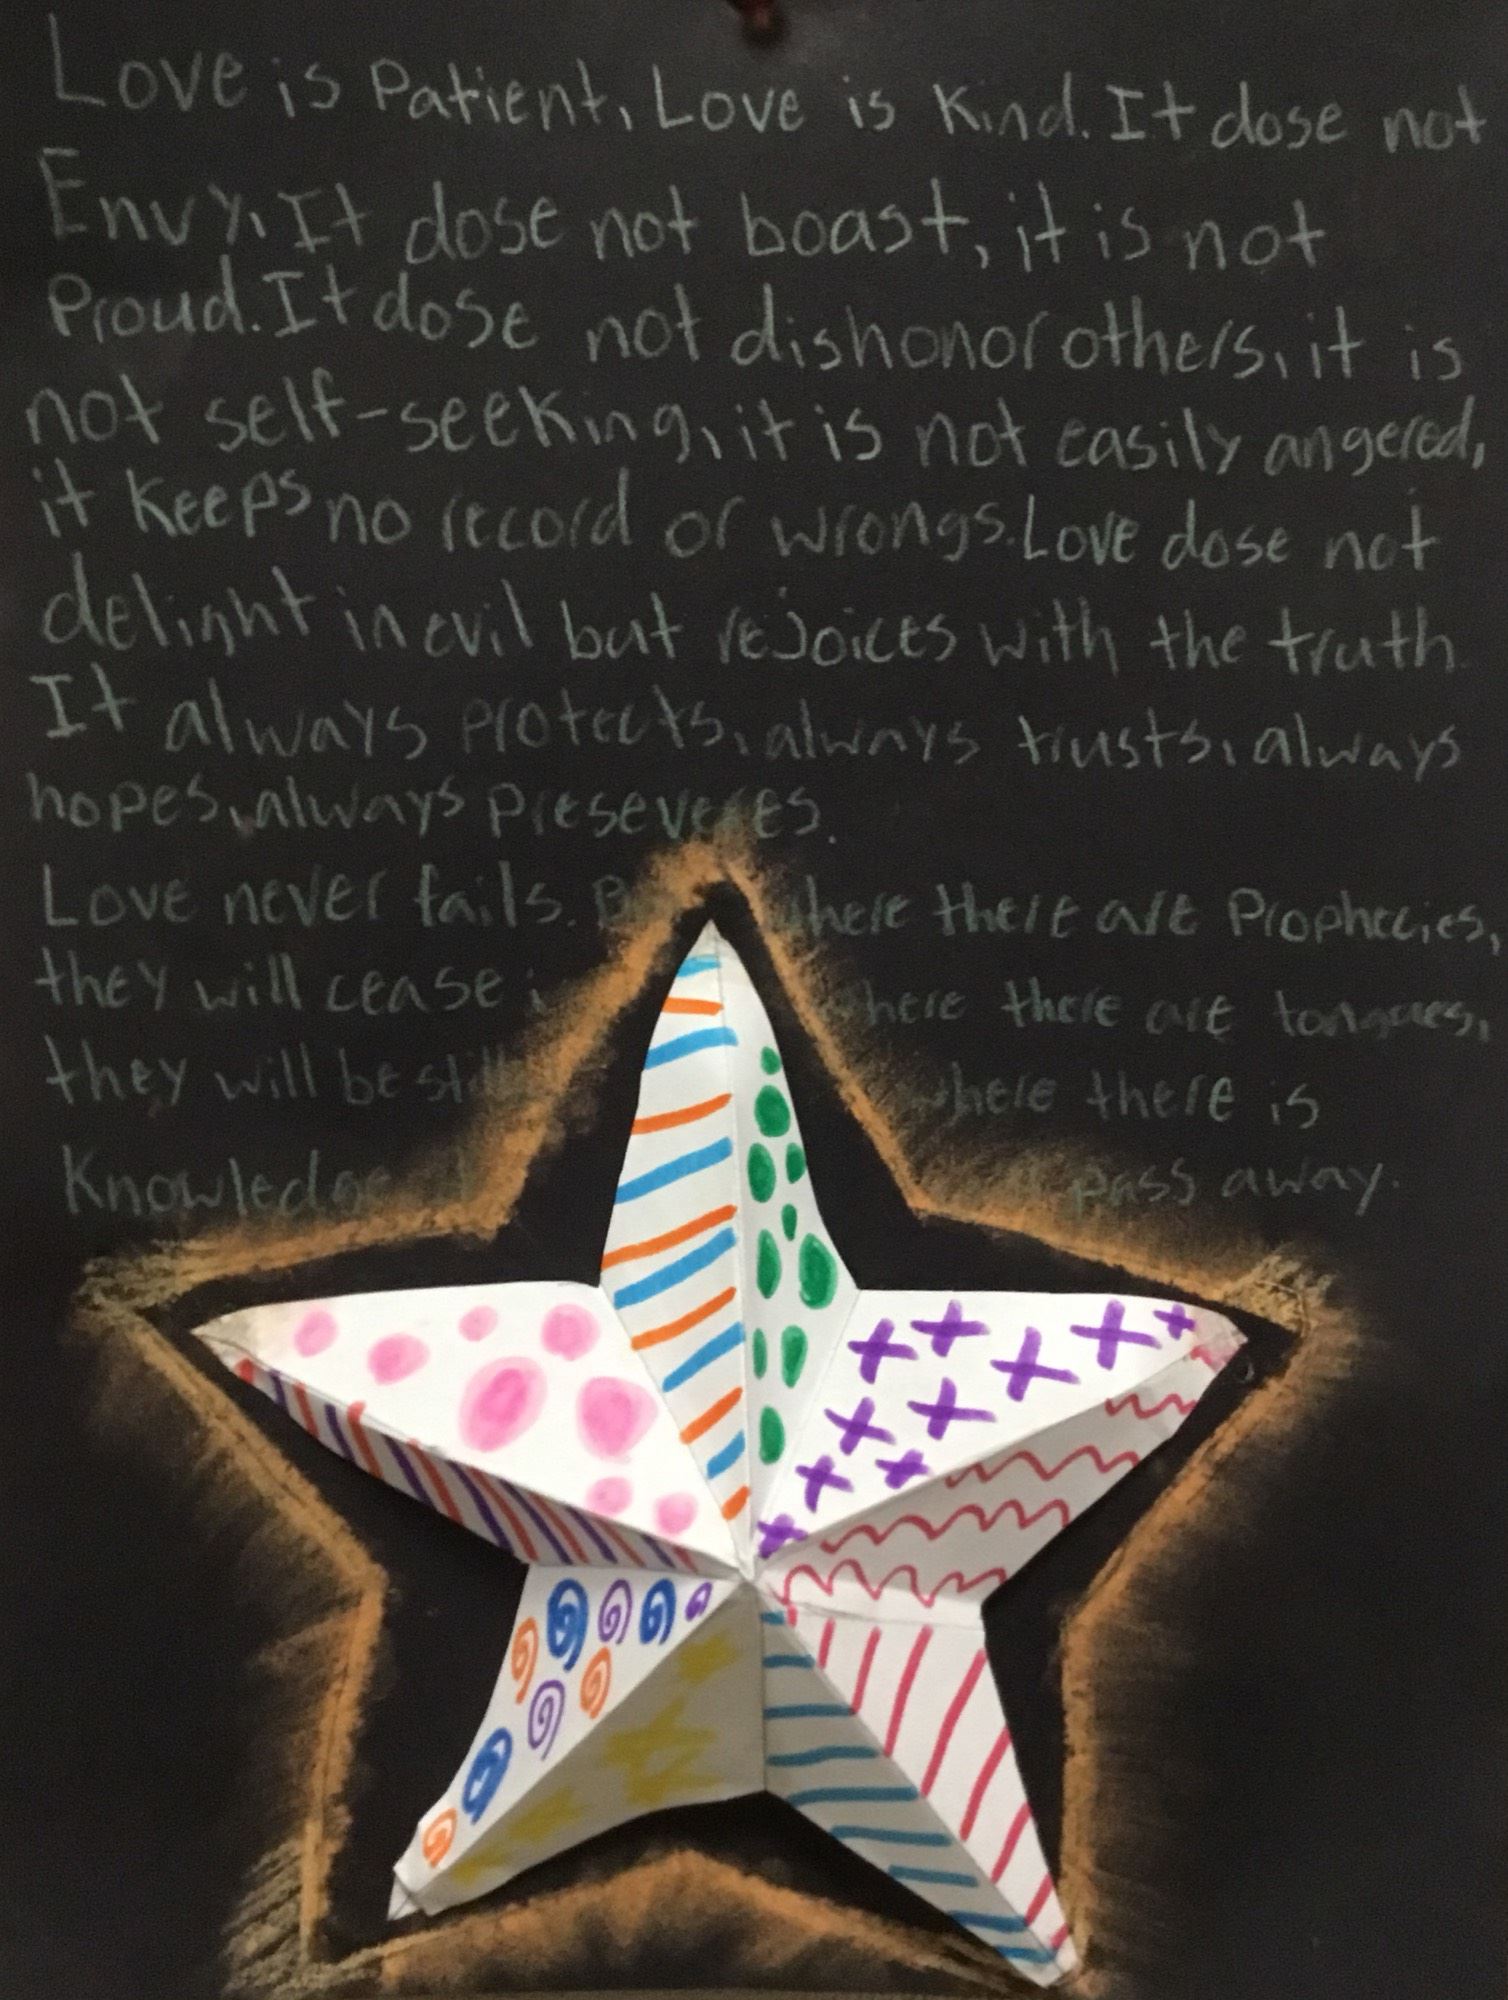 Love is Patient, Love is Kind. It dose not
Envy, It dose not boast, it is not
Proud. It dose not dishonor others, it is
not self-seeking, it is not easily angered,
it keeps no record of wrongs. Love dose not
delight in evil but rejoices with the truth
It always protects, always trusts, always
hopes, always preseveres.
Love never fails. there there are Prophecies,
they will cease there are tongues,
they will be where there is
Knowledge pass away.